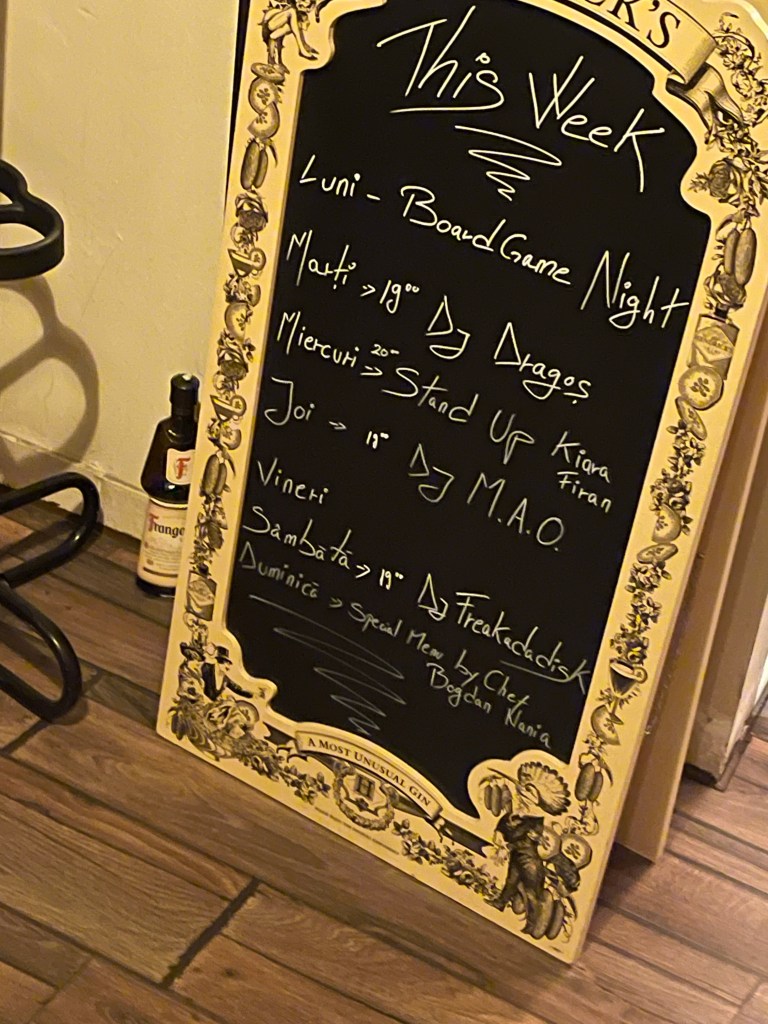 This Week
Luni - Board Game Night
Marți -> 19⁰⁰ Dj Dragoș
Miercuri 20⁰⁰ => Stand Up Kiara Firan
Joi -> 19⁰⁰ Dj M.A.O.
Vineri
Sâmbătă -> 19⁰⁰ Dj Freakadadisk
Duminică -> Special Menu by Chef
Bogdan Nania
A MOST UNUSUAL GIN
H
F